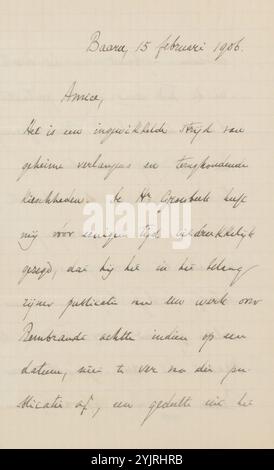 Baarn, 15 februari 1906.
Amice,
Het is een ingewikkelde strijd van
geheime verlangens en terughoudende
kieschheden. de Hr Groesbeek heeft
mij voor eenigen tijd uitdrukkelijk
gezegd, dat hij het in het belang
zijner publicatie van een werk over
Rembrandt achtte indien op een
datum, niet te ver na die pu-
blicatie af, een gedeelte uit het
alamy
Image ID: 2YJRHRB
www.alamy.com